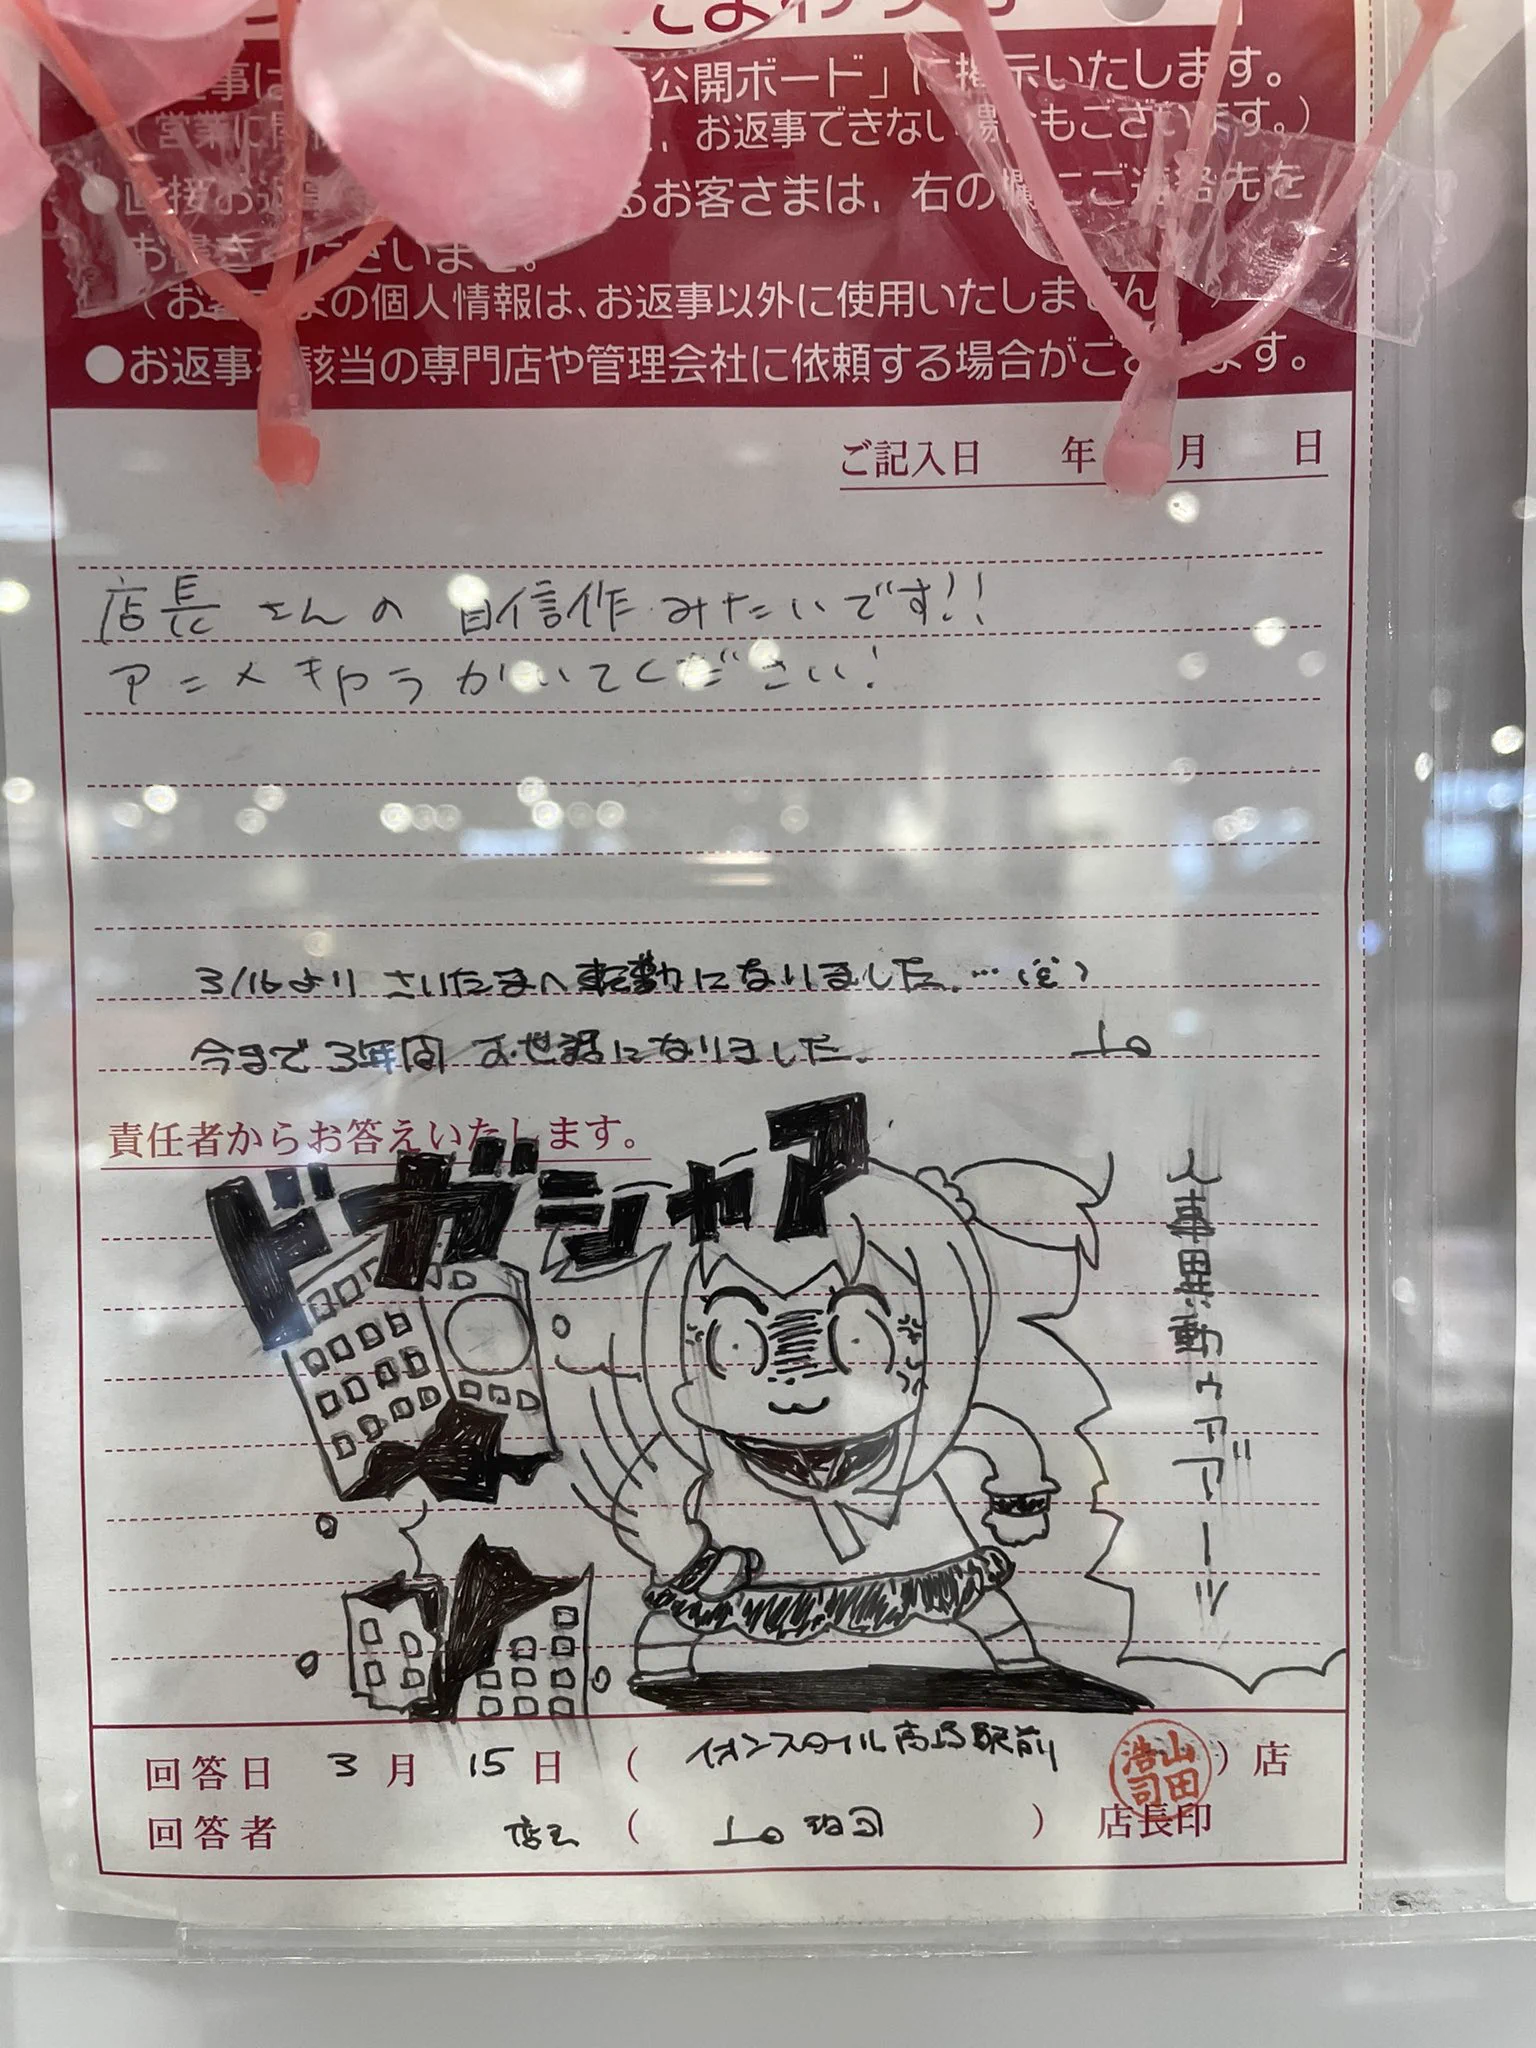 公開ボード」に掲示いたします。
お返事できない場合もございます。）
るお客さまは、右の欄にご連絡先を
お書きくださいませ。
（お客さまの個人情報は、お返事以外に使用いたしません。）
●お返事を該当の専門店や管理会社に依頼する場合がございます。
ご記入日 年 月 日
店長さんの自信作みたいです!!
アニメキャラかいてください!
3/16より さいたまへ転勤になりました.…
今まで3年間 お世話になりました.
責任者からお答えいたします。
ドガシャア
人事異動ゥアアーッ
回答日 3月 15日 ( イオンスタイル高島駅前 ) 店
山田浩司
回答者 店長 ( 山田 浩司 ) 店長印